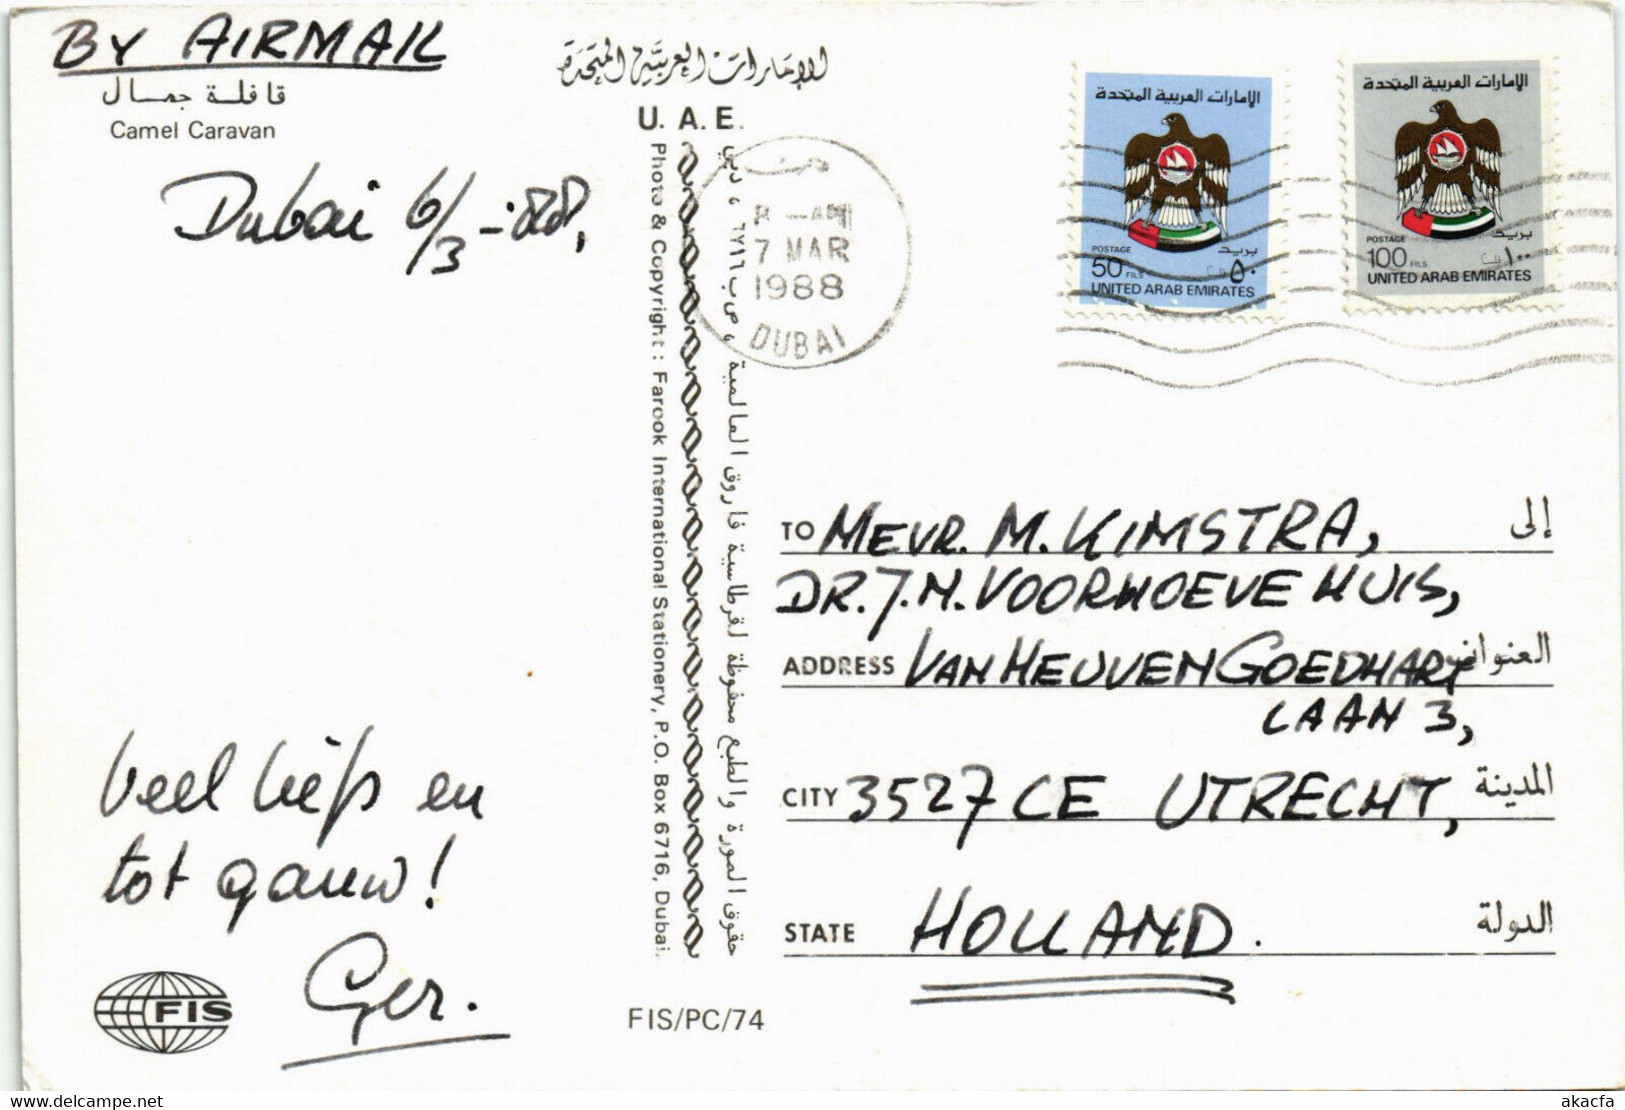 BY AIRMAIL
قافلة جمال
Camel Caravan
Dubai 6/3-'88,
Veel liefs en
tot gauw!
Ger.
FIS
الإمارات العربية المتحدة
U. A. E.
Photo & Copyright : Farook International Stationery, P.O. Box 6716, Dubai.
حقوق الصورة والطبع محفوظة لقرطاسية فاروق العالمية ، ص ب ٦٧١٦ ، دبي
FIS/PC/74
دبي
8 -AM
7 MAR
1988
DUBAI
الإمارات العربية المتحدة
POSTAGE بريد
50 FILS ٥٠
UNITED ARAB EMIRATES
الإمارات العربية المتحدة
POSTAGE بريد
100 FILS ١٠٠
UNITED ARAB EMIRATES
TO MEVR. M. KIMSTRA, إلى
DR. J.N. VOORHOEVE HUIS,
ADDRESS VAN HEUVEN GOEDHART العنوان
LAAN 3,
CITY 3527 CE UTRECHT, المدينة
STATE HOLLAND. الدولة
delcampe.net
akacfa